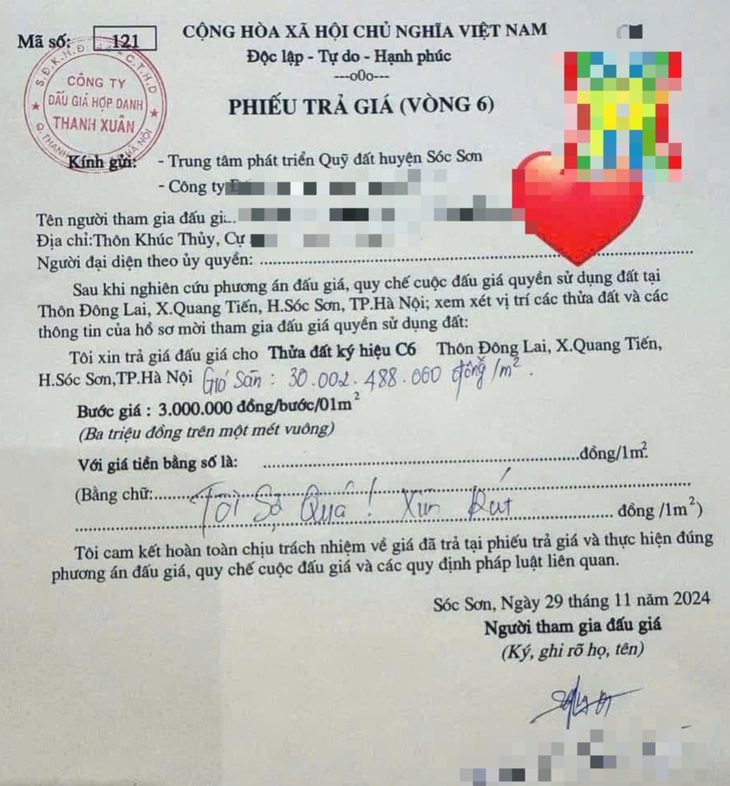 CỘNG HÒA XÃ HỘI CHỦ NGHĨA VIỆT NAM
Mã số: 121
Độc lập - Tự do - Hạnh phúc
---o0o---
CÔNG TY
ĐẤU GIÁ HỢP DANH
THANH XUÂN
PHIẾU TRẢ GIÁ (VÒNG 6)
Kính gửi: - Trung tâm phát triển Quỹ đất huyện Sóc Sơn
- Công ty
Tên người tham gia đấu
Địa chỉ:Thôn Khúc Thủy, Cự
Người đại diện theo ủy quyền:
Sau khi nghiên cứu phương án đấu giá, quy chế cuộc đấu giá quyền sử dụng đất tại
Thôn Đông Lai, X.Quang Tiến, H.Sóc Sơn, TP.Hà Nội; xem xét vị trí các thửa đất và các
thông tin của hồ sơ mời tham gia đấu giá quyền sử dụng đất:
Tôi xin trả giá đấu giá cho Thửa đất ký hiệu C6 Thôn Đông Lai, X.Quang Tiến,
H.Sóc Sơn,TP.Hà Nội Giá Sàn : 30.002.488.060 đồng/m².
Bước giá : 3.000.000 đồng/bước/01m²
(Ba triệu đồng trên một mét vuông)
Với giá tiền bằng số là: đồng/1m².
(Bằng chữ:
Tôi Sợ Quá! Xin Rút đồng /1m²)
Tôi cam kết hoàn toàn chịu trách nhiệm về giá đã trả tại phiếu trả giá và thực hiện đúng
phương án đấu giá, quy chế cuộc đấu giá và các quy định pháp luật liên quan.
Sóc Sơn, Ngày 29 tháng 11 năm 2024
Người tham gia đấu giá
(Ký, ghi rõ họ, tên)